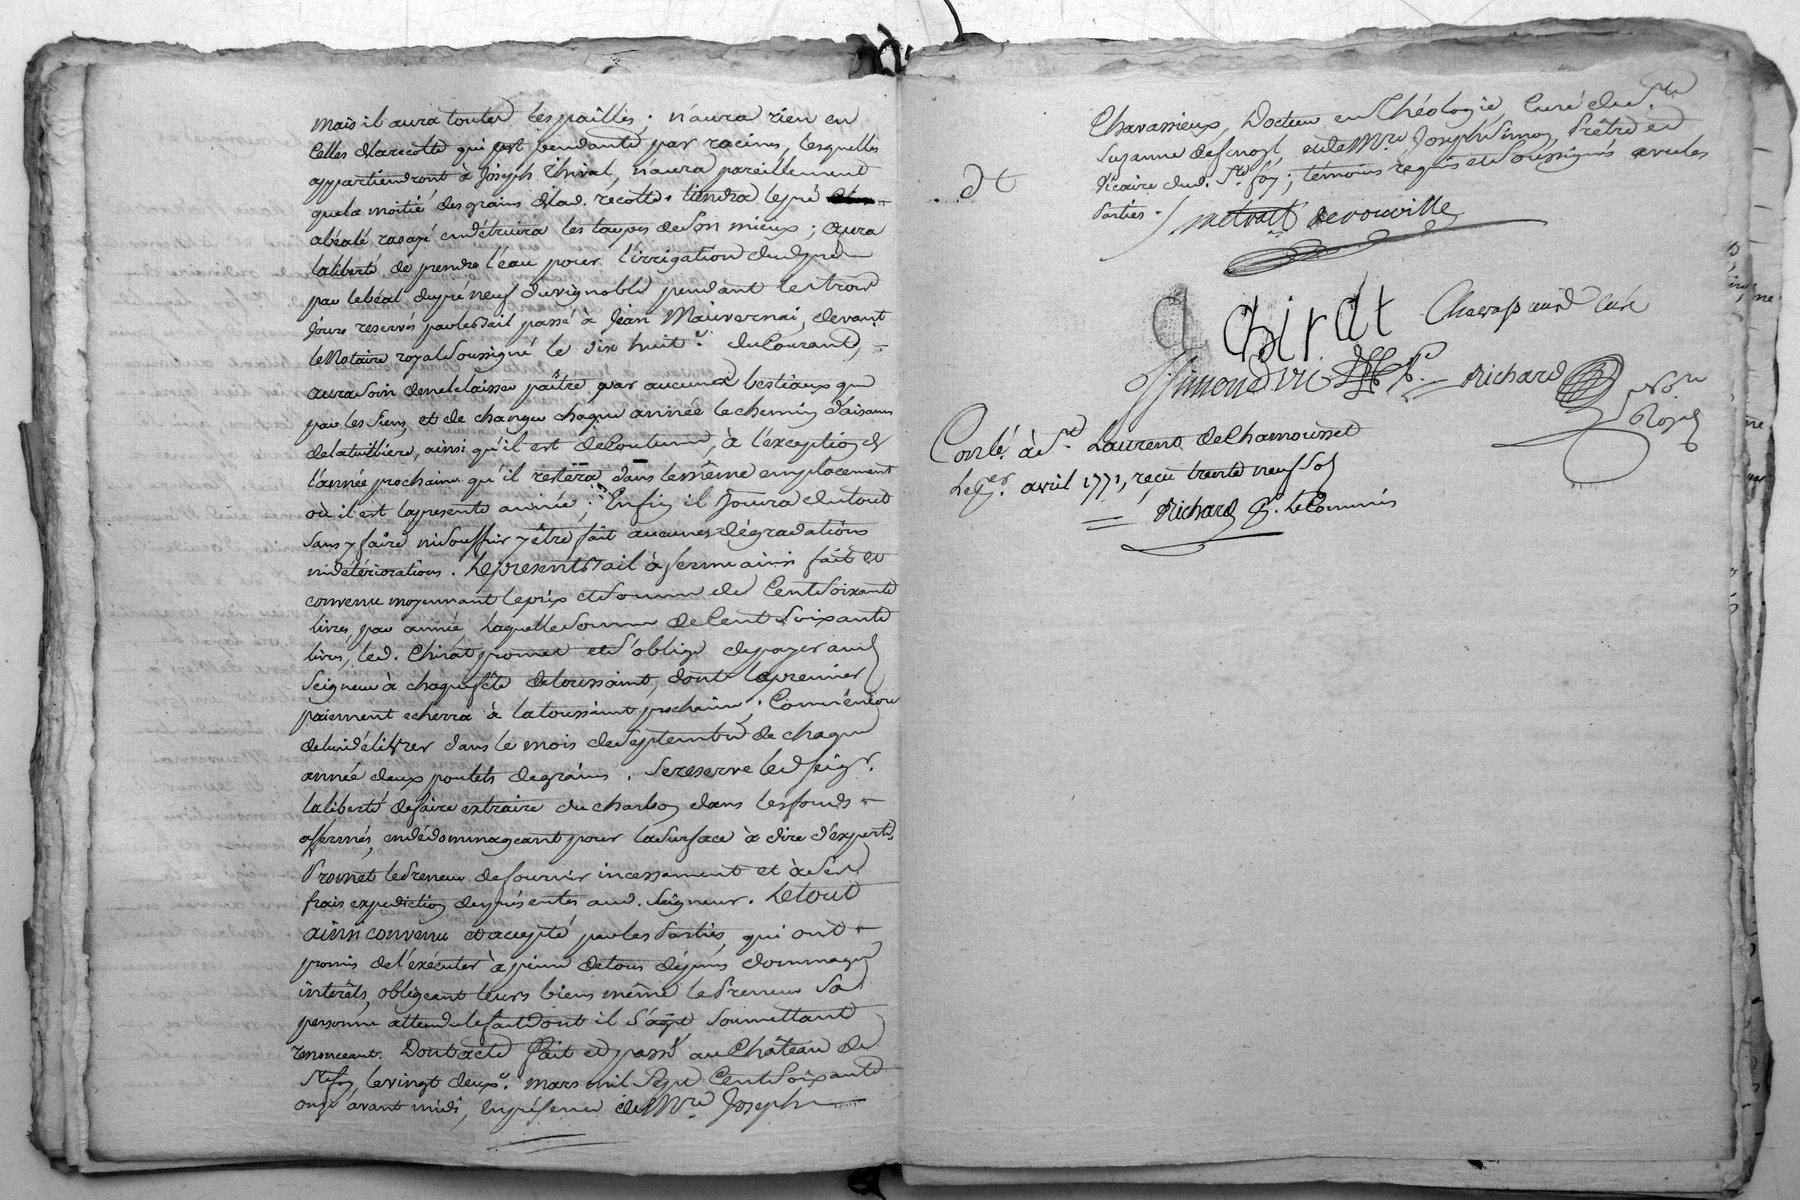 mais il aura toutes les pailles ; n'aura rien en
celles de la recolte qui est pendante par racines, lesquelles
appartiendront à Joseph Thival, n'aura pareillement
que la moitié des grains de lad. recolte. tiendra le pré
abéalé, rasayé en détruira les taupes de son mieux ; aura
la liberté de prendre l'eau pour l'irrigation dud. pré
par le béal du pré neuf du vignoble pendant les trois
jours reservés par le bail passé à Jean Mauvernai, devant
le Notaire royal soussigné le dix huit. du Courant,
aura soin de ne le laisser paître par aucuns bestiaux que
par les siens, et de changer chaque année le chemin d'aisance
de la tuilliere, ainsi qu'il est de coutume, à l'exception de
l'année prochaine qu'il restera dans le même emplacement
où il est la presente année ; Enfin il Jouira du tout
sans y faire ni souffrir y être fait aucunes dégradations
ni détériorations. Le present Bail à ferme ainsi fait et
convenu moyennant le prix et Somme de Cent Soixante
livres par année, laquelle Somme de Cent Soixante
livres, led. Chirat promet et s'oblige de payer aud.
Seigneur à chaque fête de toussaint, dont le premier
paiement echerra à la toussaint prochaine ; Comm'encore
de lui délivrer dans le mois de Septembre de chaque
année deux poulets de grains. Se reserve led. seigr.
la liberté de faire extraire du charbon dans les fonds
affermés, en dédommageant pour la surface à dire d'experts.
Promet le Preneur de fournir incessament et à ses
frais expedition des présentes aud. Seigneur. Le tout
ainsi convenu et accepté par les Parties, qui ont
promis de l'exécuter à peine de tous dépens dommages
intérêts, obligeant leurs biens même le Preneur sa
personne attendu le fait dont il s'agit soumettant
renonceant. Dont acte fait et passé au Château de
Ste foy, le vingt deuxe. mars mil Sept Cent Soixante
onze avant midi, en présence de Mre Joseph
Chavassieux, Docteur en Théologie, Curé de Ste
Suzanne et de Mre Joseph Simon, Prêtre et
Vicaire dud. Ste foy ; témoins requis et Soussignés avec les
Parties.
metrat de vouville
Chirat Chavassieux curé
Simond vic Richard Nore
Royal
Conlé. à St. Laurent de Chamousset
avril 1771, reçu trente neuf sols
Richard p. le Commis